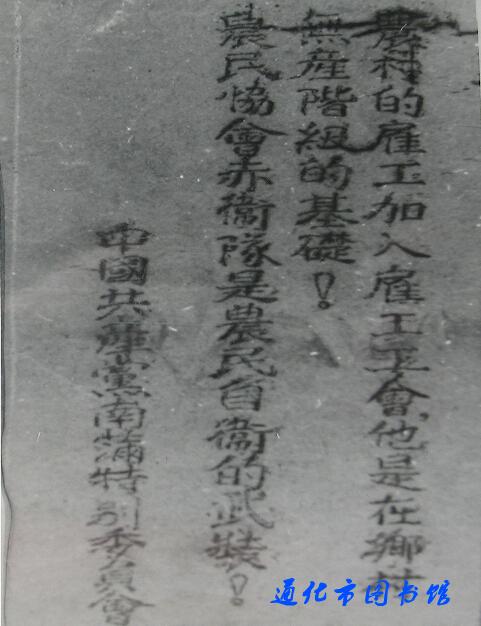 農村的雇工加入雇工工會，他是在鄉村
無産階級的基礎！
農民協會赤衞隊是農民自衞的武裝！
中國共產黨南滿特別委員會
通化市图书馆